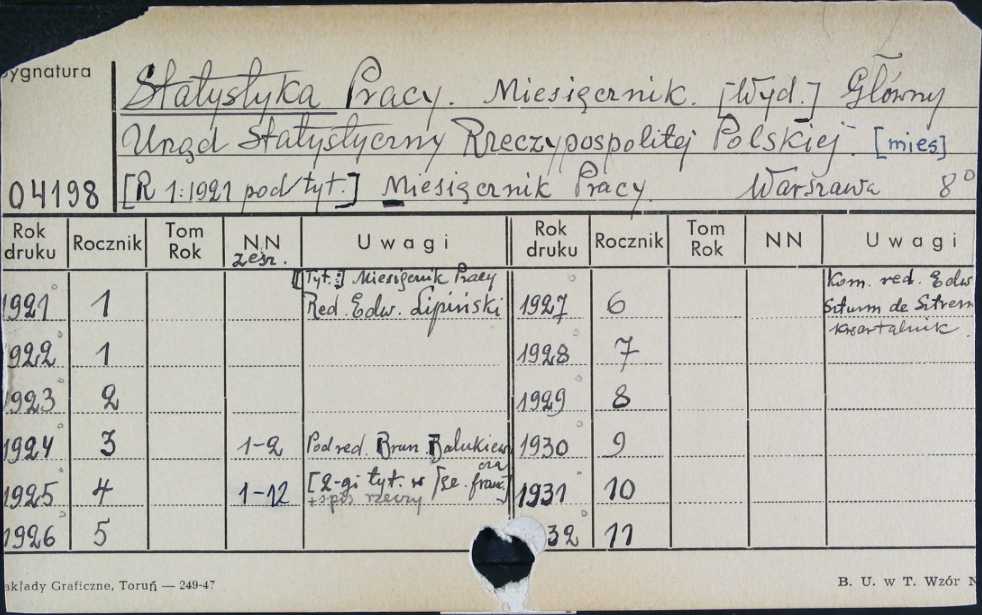 Sygnatura
Statystyka Pracy. Miesięcznik. [Wyd.] Główny
Urząd Statystyczny Rzeczypospolitej Polskiej. [mies]
04198 [R 1:1921 pod/tyt.] Miesięcznik Pracy. Warszawa 8°
Rok druku Rocznik Tom Rok NN zesz. Uwagi Rok druku Rocznik Tom Rok NN Uwagi
1921 1 [Tyt.:] Miesięcznik Pracy Red. Edw. Lipiński 1927 6 Kom. red. Edw. Szturm de Sztrem kwartalnik.
1922 1 1928 7
1923 2 1929 8
1924 3 1-2 Pod red. Bron. Bałukiew 1930 9
1925 4 1-12 [2-gi tyt. w jęz. franc.] + spis rzeczy 1931 10
1926 5 32 11
akłady Graficzne, Toruń — 249-47 B. U. w T. Wzór N